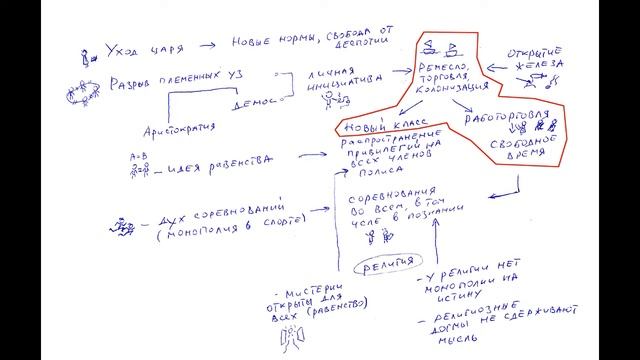 Уход царя → Новые нормы, свобода от
деспотии
Разрыв племенных уз
Демос
личная
инициатива
Ремесло,
торговля,
колонизация
открытие
железа
Аристократия
Новый класс
Работорговля
свободное
время
А=В
– идея равенства
распространение
привилегий на
всех членов
полиса
– дух соревнований
(монополия в спорте)
соревнования
во всем, в том
числе в познании
религия
– мистерии
открыты для
всех (равенство)
– у религии нет
монополии на
истину
– религиозные
догмы не сдерживают
мысль